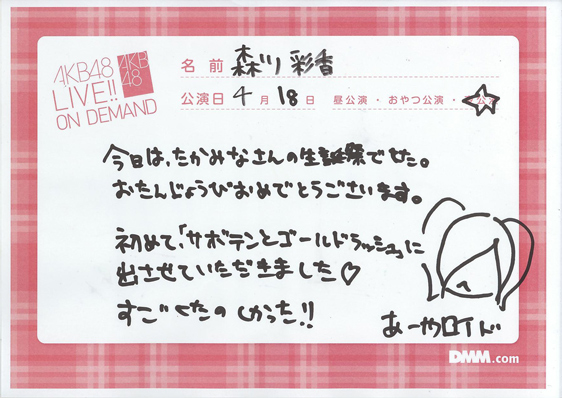 AKB48
LIVE!!
ON DEMAND
AKB
48
名前 森川 彩香
公演日 4月18日 昼公演・おやつ公演・
今日は、たかみなさんの生誕祭でした。
おたんじょうびおめでとうございます。
初めて「サボテンとゴールドラッシュ」に
出させていただきました♡
すごくたのしかった!!
あーやロイド
DMM.com